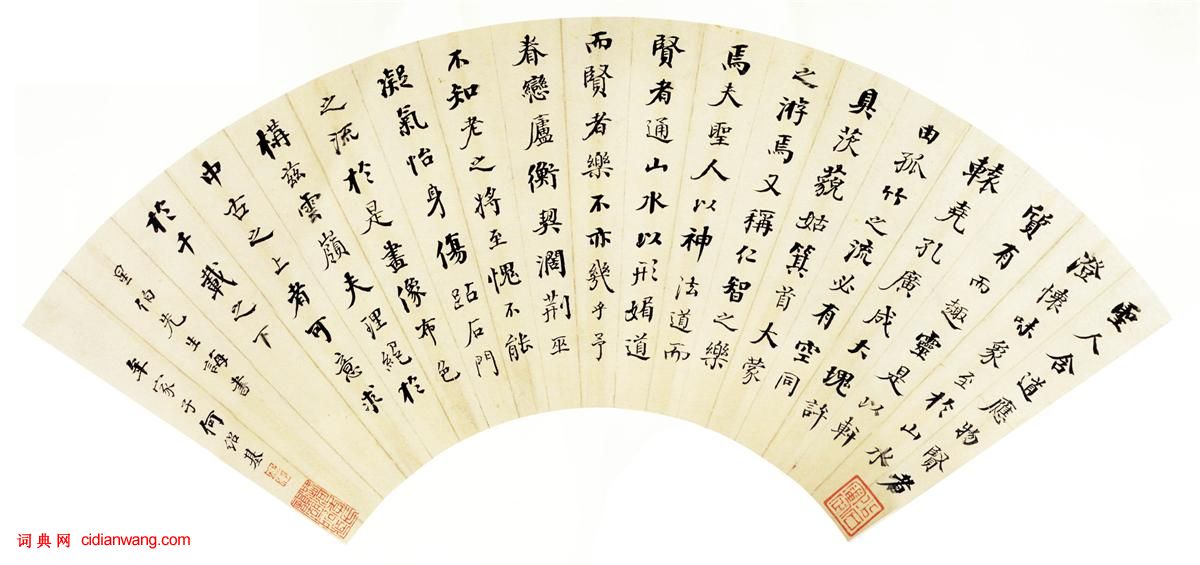 聖人含道應物賢者
澄懷味象至於山水
質有而趣靈是以軒
轅堯孔廣成大塊許
由孤竹之流必有空同
具茨藐姑箕首大蒙
之游焉又稱仁智之樂
焉夫聖人以神法道而
賢者通山水以形媚道
而賢者樂不亦幾乎予
眷戀廬衡契濶荆巫
不知老之將至愧不能
凝氣怡身傷跕石門
之流於是畫像布色
構茲雲嶺夫理絕於
中古之上者可意求
於千載之下
星伯先生誨書
年家子何紹基
词典网 cidianwang.com